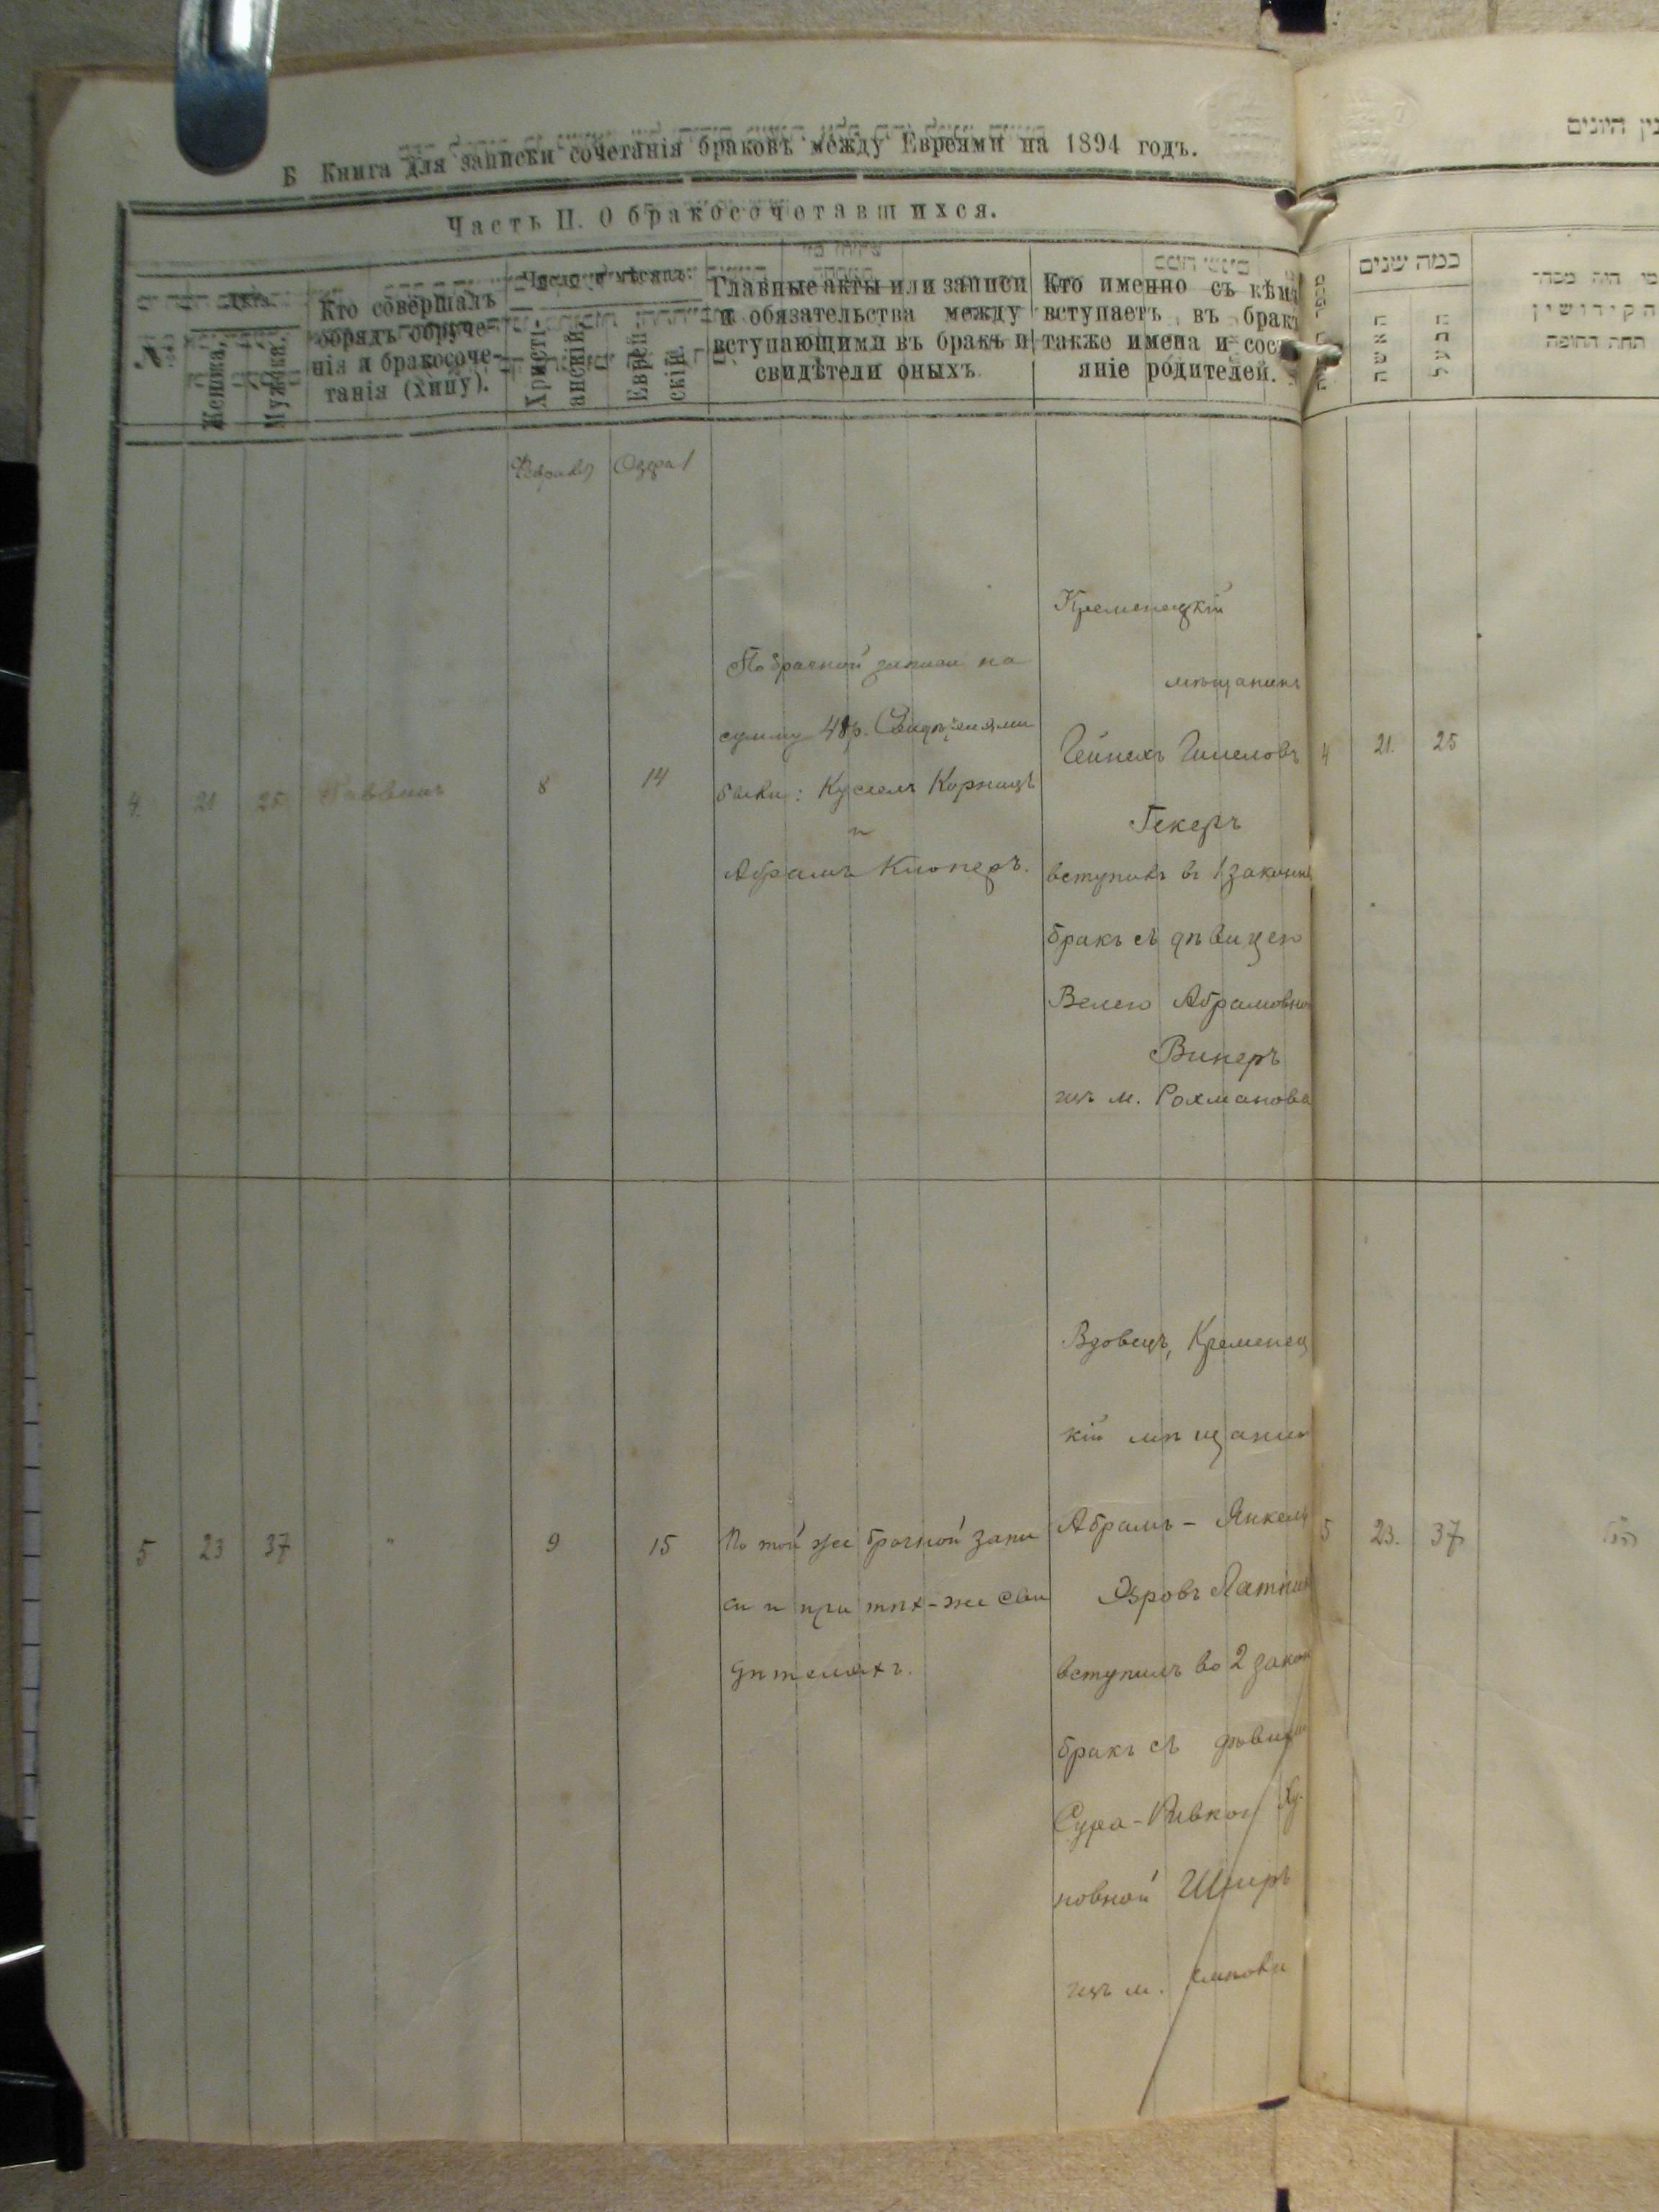 Б Книга для записки сочетанія браковъ между Евреями на 1894 годъ.
Часть II. О бракосочетавшихся.
№
Лѣта.
Женска.
Мужска.
Кто совершалъ
обрядъ обруче-
нія и бракосоче-
танія (хипу).
Число и мѣсяцъ:
Христі-
анскій.
Еврей-
скій.
Главные акты или записи
и обязательства между
вступающими въ бракъ и
свидѣтели оныхъ
Кто именно съ кѣмъ
вступаетъ въ бракъ
также имена и сост
яніе родителей.
Адра 1
4. 21 25 Раввинъ 8 14
По брачной записи на
сумму 48 р. Свидѣтелями
были: Кусель Корницъ
и
Абрамъ Кнопера.
Кременецкій
мѣщанинъ
Гейнехъ Гимеловъ
Гекеръ
вступилъ въ 1 законн
бракъ съ дѣвицею
Велею Абрамовно
Викеръ
изъ м. Рохманова
5 23 37 " 9 15
По той же брачной запи
си и при тѣх-же сви
дѣтеляхъ.
Вдовецъ, Кременец
кій мѣщанин
Абрамъ - Янкель
вступилъ во 2 закон
бракъ съ дѣвиц
Сура-Ривкою
новной
изъ м.
כמה שנים
האשה
הבעל
הקידושין
תחת החופה
4 21. 25
5 23. 37